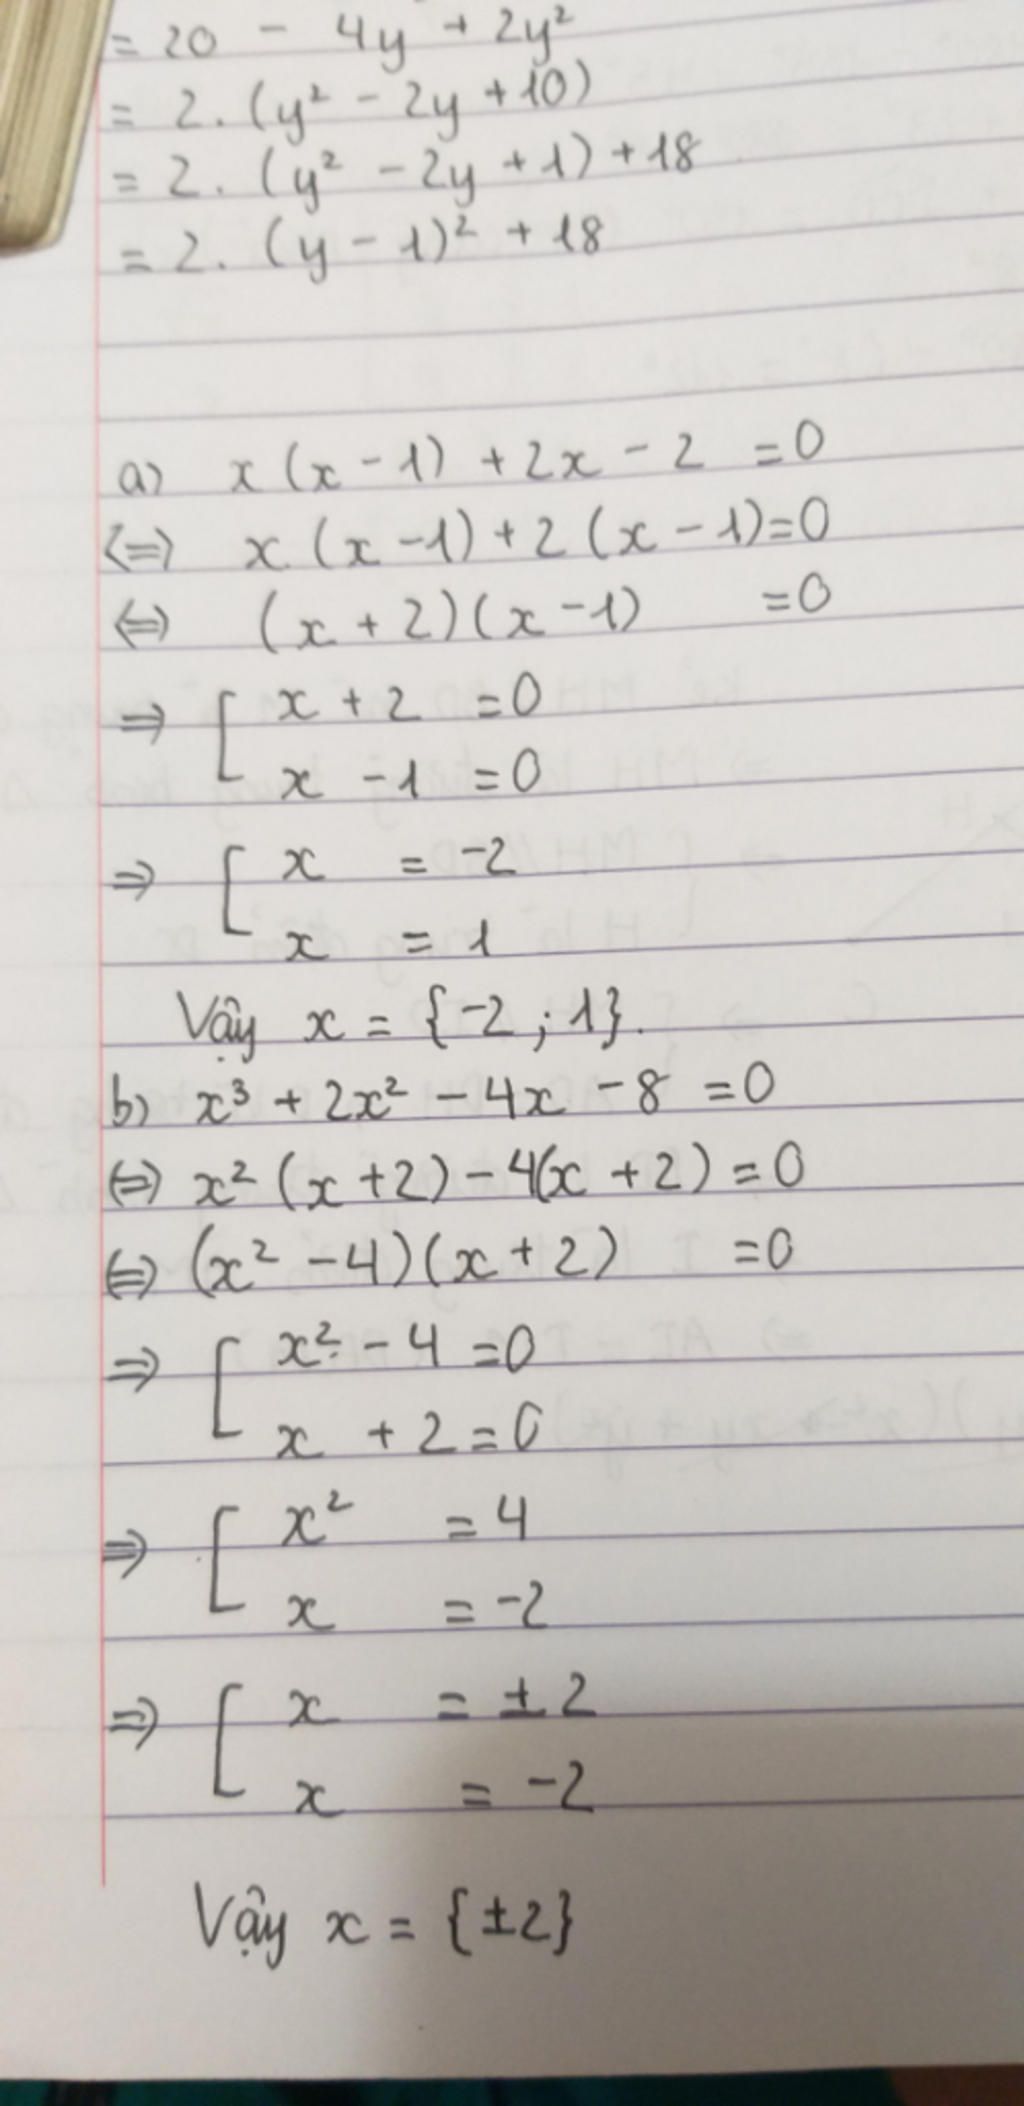 = 20 - 4y + 2y²
= 2. (y² - 2y + 10)
= 2. (y² - 2y + 1) + 18
= 2. (y - 1)² + 18
a) x (x - 1) + 2x - 2 = 0
⟨=⟩ x (x - 1) + 2 (x - 1) = 0
⟨=⟩ (x + 2) (x - 1) = 0
⇒ [ x + 2 = 0
x - 1 = 0
⇒ [ x = -2
x = 1
Vậy x = {-2 ; 1}.
b) x³ + 2x² - 4x - 8 = 0
⟨=⟩ x² (x + 2) - 4(x + 2) = 0
⟨=⟩ (x² - 4) (x + 2) = 0
⇒ [ x² - 4 = 0
x + 2 = 0
⇒ [ x² = 4
x = -2
⇒ [ x = ± 2
x = -2
Vậy x = {±2}